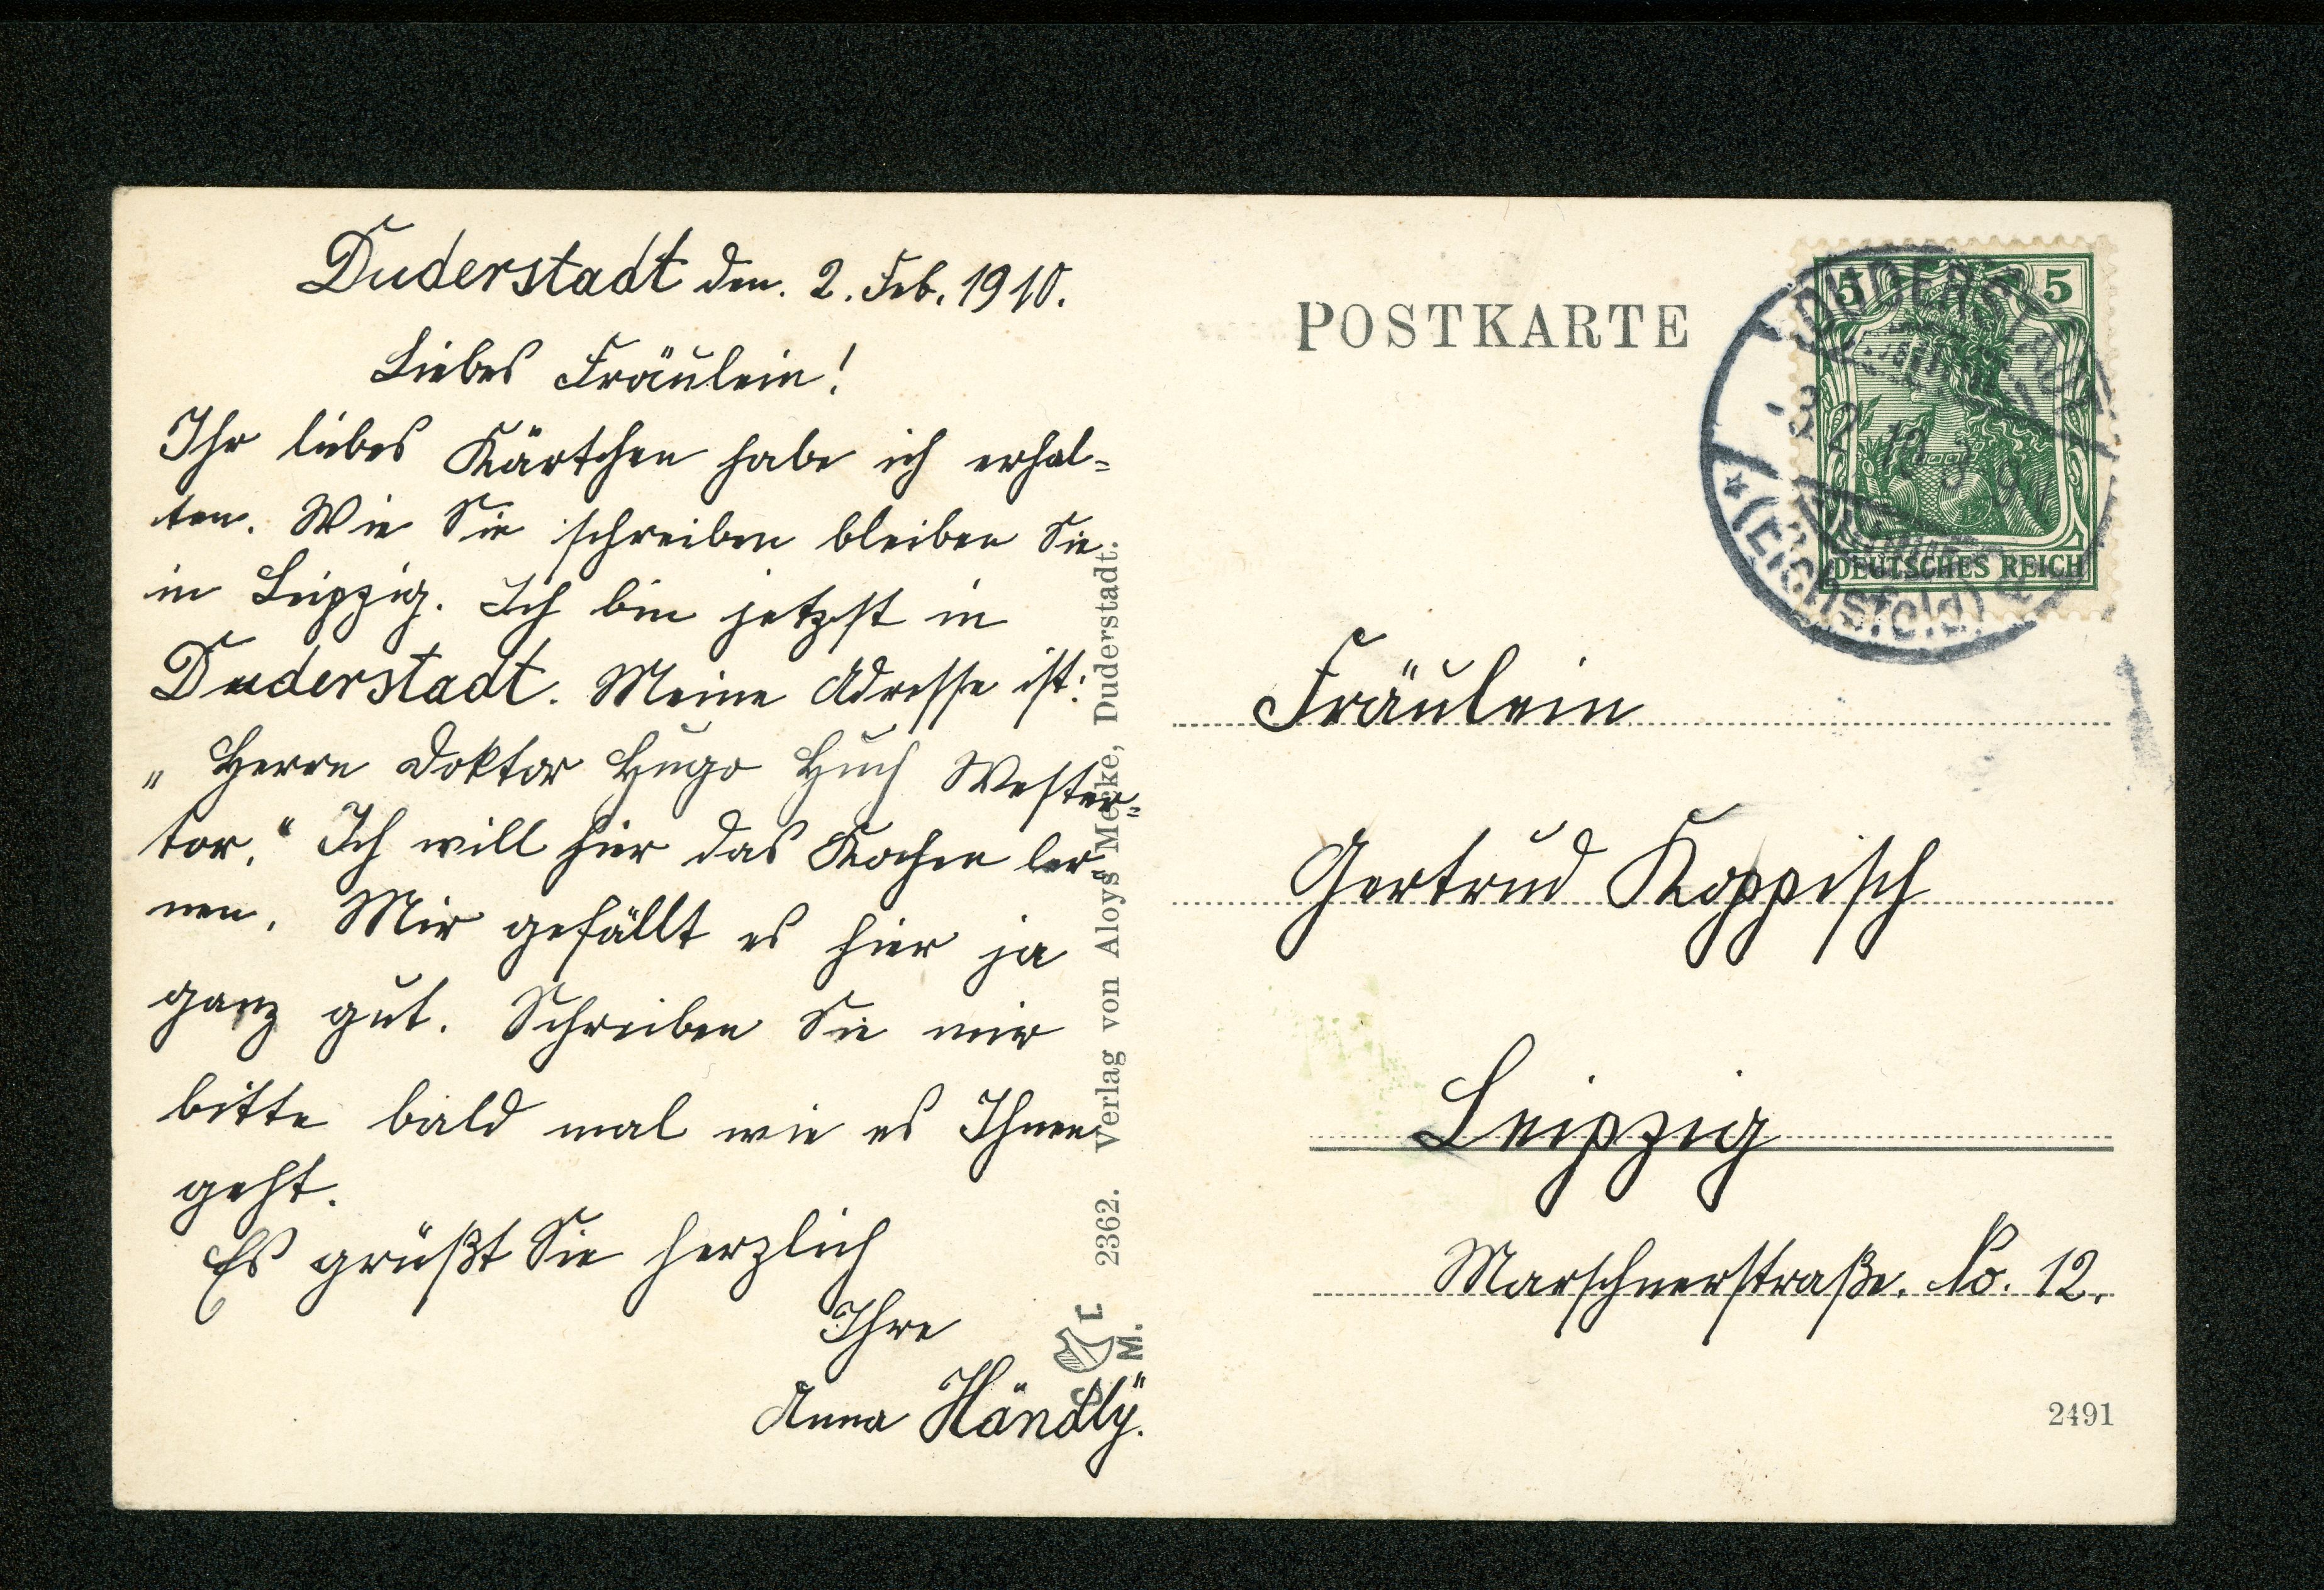 Duderstadt den. 2. Feb. 1910.
Liebes Fräulein!
Ihr liebes Kärtchen habe ich erhal=
ten. Wie Sie schreiben bleiben Sie
in Leipzig. Ich bin jetzst in
Duderstadt. Meine Adresse ist:
„Herrn Doktor Hugo Huch Wester=
tor.“ Ich will hier das Kochen ler=
nen. Mir gefällt es hier ja
ganz gut. Schreiben Sie mir
bitte bald mal wie es Ihnen
geht.
Es grüßt Sie herzlich
Ihre
Anna Händly.
2362. Verlag von Aloys Mecke, Duderstadt.
M.
POSTKARTE
5 5
DEUTSCHES REICH
DUDERSTADT
-3.2.10.
* (Eichsfeld)
Fräulein
Gertrud Koppisch
Leipzig
Marschnerstraße. No. 12.
2491